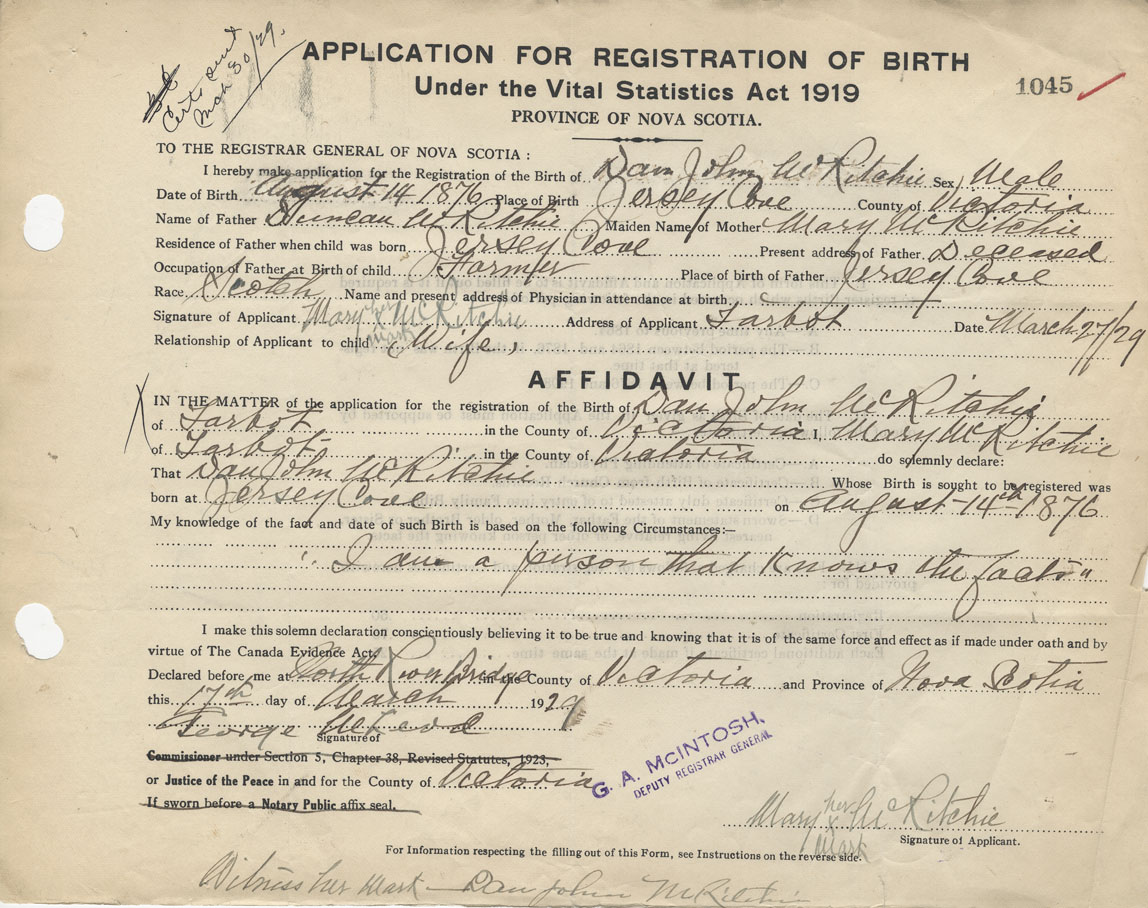 Certs sent
Mch 30/29.
APPLICATION FOR REGISTRATION OF BIRTH
Under the Vital Statistics Act 1919
1045
PROVINCE OF NOVA SCOTIA.
TO THE REGISTRAR GENERAL OF NOVA SCOTIA :
I hereby make application for the Registration of the Birth of Dan John McRitchie Sex, Male
Date of Birth August 14 1876 Place of Birth Jersey Cove County of Victoria
Name of Father Duncan McRitchie Maiden Name of Mother Mary McRitchie
Residence of Father when child was born Jersey Cove Present address of Father Deceased
Occupation of Father at Birth of child Farmer Place of birth of Father Jersey Cove
Race Scotch Name and present address of Physician in attendance at birth
Signature of Applicant Mary x McRitchie Address of Applicant Tarbot Date March 27/29
mark
Relationship of Applicant to child Wife,
AFFIDAVIT
X IN THE MATTER of the application for the registration of the Birth of Dan John McRitchie
of Tarbot in the County of Victoria I, Mary McRitchie
of Tarbot in the County of Victoria do solemnly declare:
That Dan John McRitchie Whose Birth is sought to be registered was
born at Jersey Cove on August 14th 1876
My knowledge of the fact and date of such Birth is based on the following Circumstances:—
"I am a person that knows the facts"
I make this solemn declaration conscientiously believing it to be true and knowing that it is of the same force and effect as if made under oath and by
virtue of The Canada Evidence Act.
Declared before me at North River Bridge in the County of Victoria and Province of Nova Scotia
this 17th day of March 1929
George McLeod
Signature of
Commissioner under Section 5, Chapter 38, Revised Statutes, 1923,
or Justice of the Peace in and for the County of Victoria
G. A. MCINTOSH,
DEPUTY REGISTRAR GENERAL
If sworn before a Notary Public affix seal.
Mary her x mark McRitchie
Signature of Applicant.
For Information respecting the filling out of this Form, see Instructions on the reverse side.
Witness her mark — Dan John McRitchie